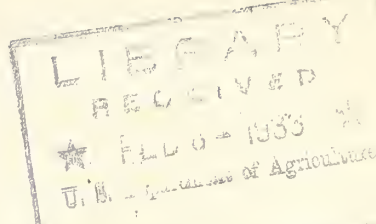 LIBRARY
RECEIVED
★
U. S. Department of Agriculture